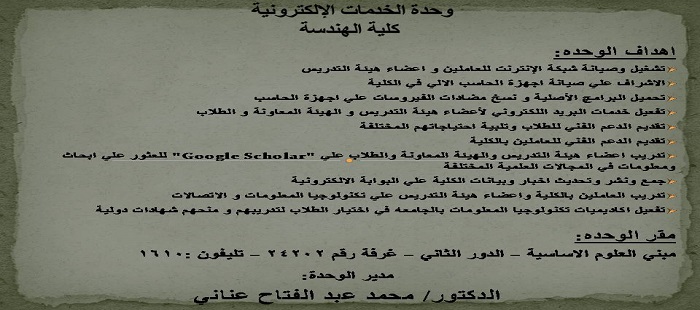 وحدة الخدمات الإلكترونية
كلية الهندسة
اهداف الوحده:
تشغيل وصيانة شبكة الإنترنت للعاملين و اعضاء هيئة التدريس
الاشراف علي صيانة اجهزة الحاسب الالي في الكلية
تحميل البرامج الأصلية و نسخ مضادات الفيروسات علي اجهزة الحاسب
تفعيل خدمات البريد الالكتروني لأعضاء هيئة التدريس و الهيئة المعاونة و الطلاب
تقديم الدعم الفني للطلاب وتلبية احتياجاتهم المختلفة
تقديم الدعم الفني للعاملين بالكلية
تدريب اعضاء هيئة التدريس والهيئة المعاونة والطلاب علي "Google Scholar" للعثور علي ابحاث
ومعلومات في المجالات العلمية المختلفة
جمع ونشر وتحديث اخبار وبيانات الكلية علي البوابة الالكترونية
تدريب العاملين بالكلية واعضاء هيئة التدريس علي تكنولوجيا المعلومات و الاتصالات
تفعيل اكاديميات تكنولوجيا المعلومات بالجامعه في اختيار الطلاب لتدريبهم و منحهم شهادات دولية
مقر الوحده:
مبني العلوم الاساسية – الدور الثاني – غرفة رقم ٢٤٢٠٢ – تليفون :١٦١٠
مدير الوحدة:
الدكتور/ محمد عبد الفتاح عناني